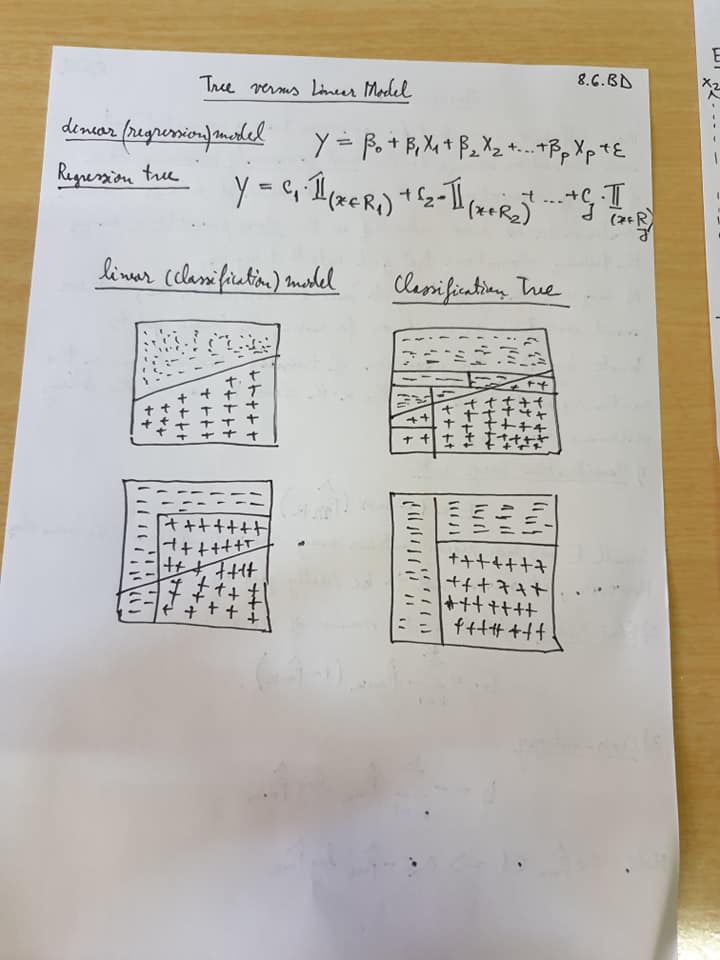 8.6.BD
Tree versus Linear Model
Linear (regression) model Y = β₀ + β₁X₁ + β₂X₂ + ... + βₚXₚ + ε
Regression tree Y = C₁ · 𝟙(x∈R₁) + C₂ · 𝟙(x∈R₂) + ... + Cⱼ · 𝟙(x∈Rⱼ)
linear (classification) model Classification Tree
E
X₂